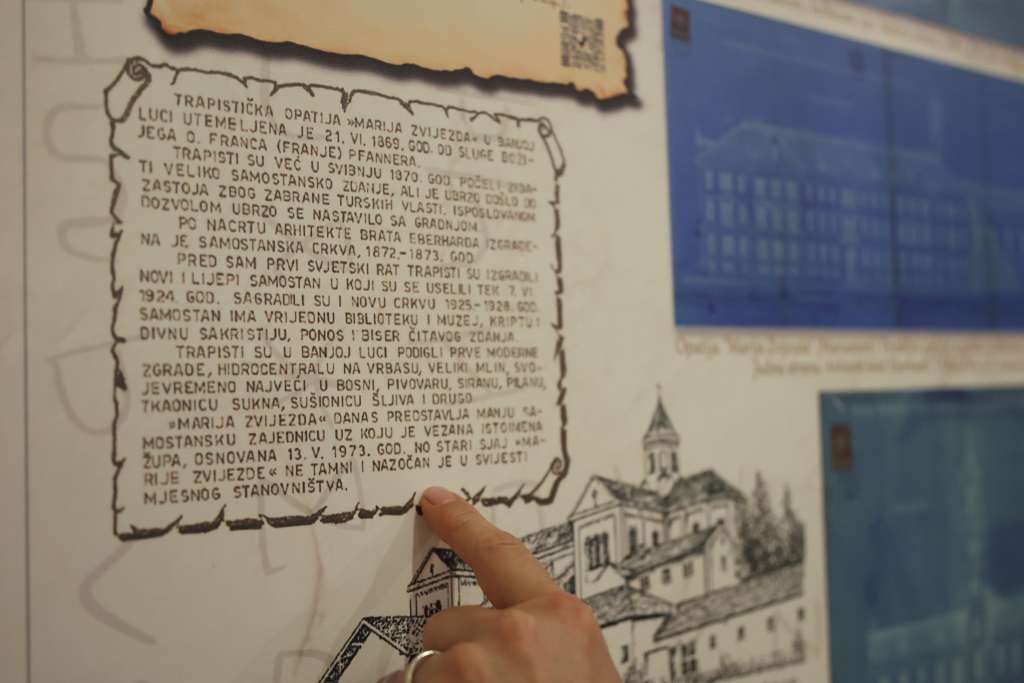 TRAPISTIČKA OPATIJA »MARIJA ZVIJEZDA« U BANJOJ
LUCI UTEMELJENA JE 21. VI. 1869. GOD. OD SLUGE BOŽI-
JEGA O. FRANCA (FRANJE) PFANNERA.
TRAPISTI SU VEĆ U SVIBNJU 1870. GOD. POČELI ZIDA-
TI VELIKO SAMOSTANSKO ZDANJE, ALI JE UBRZO DOŠLO DO
ZASTOJA ZBOG ZABRANE TURSKIH VLASTI. ISPOSLOVANOM
DOZVOLOM UBRZO SE NASTAVILO SA GRADNJOM.
PO NACRTU ARHITEKTE BRATA EBERHARDA IZGRAĐE-
NA JE SAMOSTANSKA CRKVA, 1872.-1873. GOD.
PRED SAM PRVI SVJETSKI RAT TRAPISTI SU IZGRADILI
NOVI I LIJEPI SAMOSTAN U KOJI SU SE USELILI TEK 7. VI.
1924. GOD. SAGRADILI SU I NOVU CRKVU 1925.-1928. GOD.
SAMOSTAN IMA VRIJEDNU BIBLIOTEKU I MUZEJ, KRIPTU I
DIVNU SAKRISTIJU, PONOS I BISER ČITAVOG ZDANJA.
TRAPISTI SU U BANJOJ LUCI PODIGLI PRVE MODERNE
ZGRADE, HIDROCENTRALU NA VRBASU, VELIKI MLIN, SVO-
JEVREMENO NAJVEĆI U BOSNI, PIVOVARU, SIRANU, PILANU,
TKAONICU SUKNA, SUŠIONICU ŠLJIVA I DRUGO.
»MARIJA ZVIJEZDA« DANAS PREDSTAVLJA MANJU SA-
MOSTANSKU ZAJEDNICU UZ KOJU JE VEZANA ISTOIMENA
ŽUPA, OSNOVANA 13. V. 1973. GOD. NO STARI SJAJ »MA-
RIJE ZVIJEZDE« NE TAMNI I NAZOČAN JE U SVIJESTI
MJESNOG STANOVNIŠTVA.